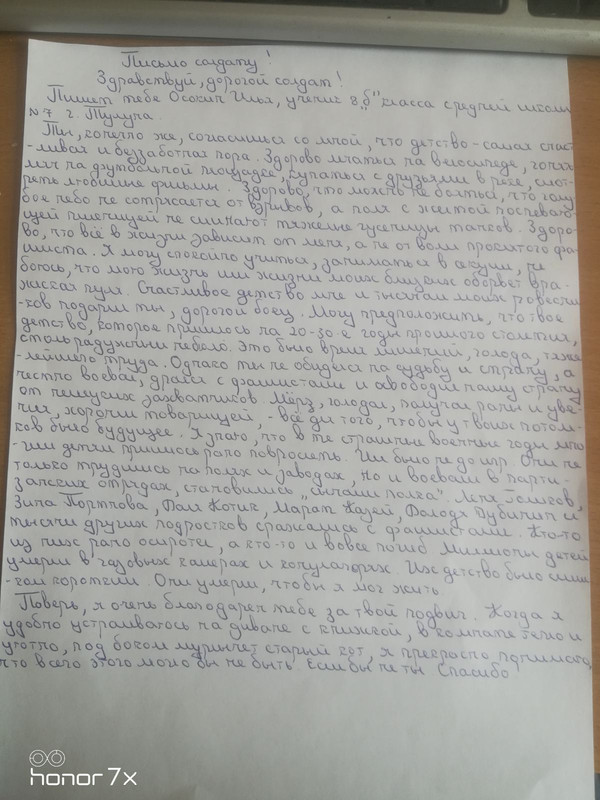 Письмо солдату!
Здравствуй, дорогой солдат!
Пишет тебе Осокин Илья, ученик 8 „б" класса средней школы
№7 г. Тулуна.
Ты, конечно же, согласишься со мной, что детство - самая счаст
-ливая и беззаботная пора. Здорово мчаться на велосипеде, гонять
мяч на футбольной площадке, купаться с друзьями в реке, смот-
реть любимые фильмы. Здорово, что можно не бояться, что голу
бое небо не сотрясается от взрывов, а поля с желтой поспеваю-
щей пшеницей не сминают тяжелые гусеницы танков. Здоро-
во, что всё в жизни зависит от меня, а не от воли проклятого фа-
шиста. Я могу спокойно учиться, заниматься в секции, не
боюсь, что мою жизнь или жизни моих близких оборвет вра-
жеская пуля. Счастливое детство мне и тысячам моих ровесни
-ков подарил ты, дорогой боец. Могу предположить, что твое
детство, которое пришлось на 20-30-е годы прошлого столетия,
столь радужным не было. Это было время лишений, голода, тяже
-лейшего труда. Однако ты не обиделся на судьбу и страну, а
честно воевал, дрался с фашистами и освободил нашу страну
от немецких захватчиков. Мёрз, голодал, получал раны и уве-
чия, хоронил товарищей, - всё для того, чтобы у твоих потом-
ков было будущее. Я знаю, что в те страшные военные годы мно
-гим детям пришлось рано повзрослеть. Им было не до игр. Они не
только трудились на полях и заводах, но и воевали в парти-
занских отрядах, становились „сынами полка". Леня Голиков,
Зина Портнова, Валя Котик, Марат Казей, Володя Дубинин и
тысячи других подростков сражались с фашистами. Кто-то
из них рано осиротел, а кто-то и вовсе погиб. Миллионы детей
умерли в газовых камерах и концлагерях. Их детство было слиш
-ком коротким. Они умерли, чтобы я мог жить.
Поверь, я очень благодарен тебе за твой подвиг. Когда я
удобно устраиваюсь на диване с книжкой, в комнате тепло и
уютно, под боком мурлычет старый кот, я прекрасно понимаю,
что всего этого могло бы не быть если бы не ты Спасибо
honor 7x